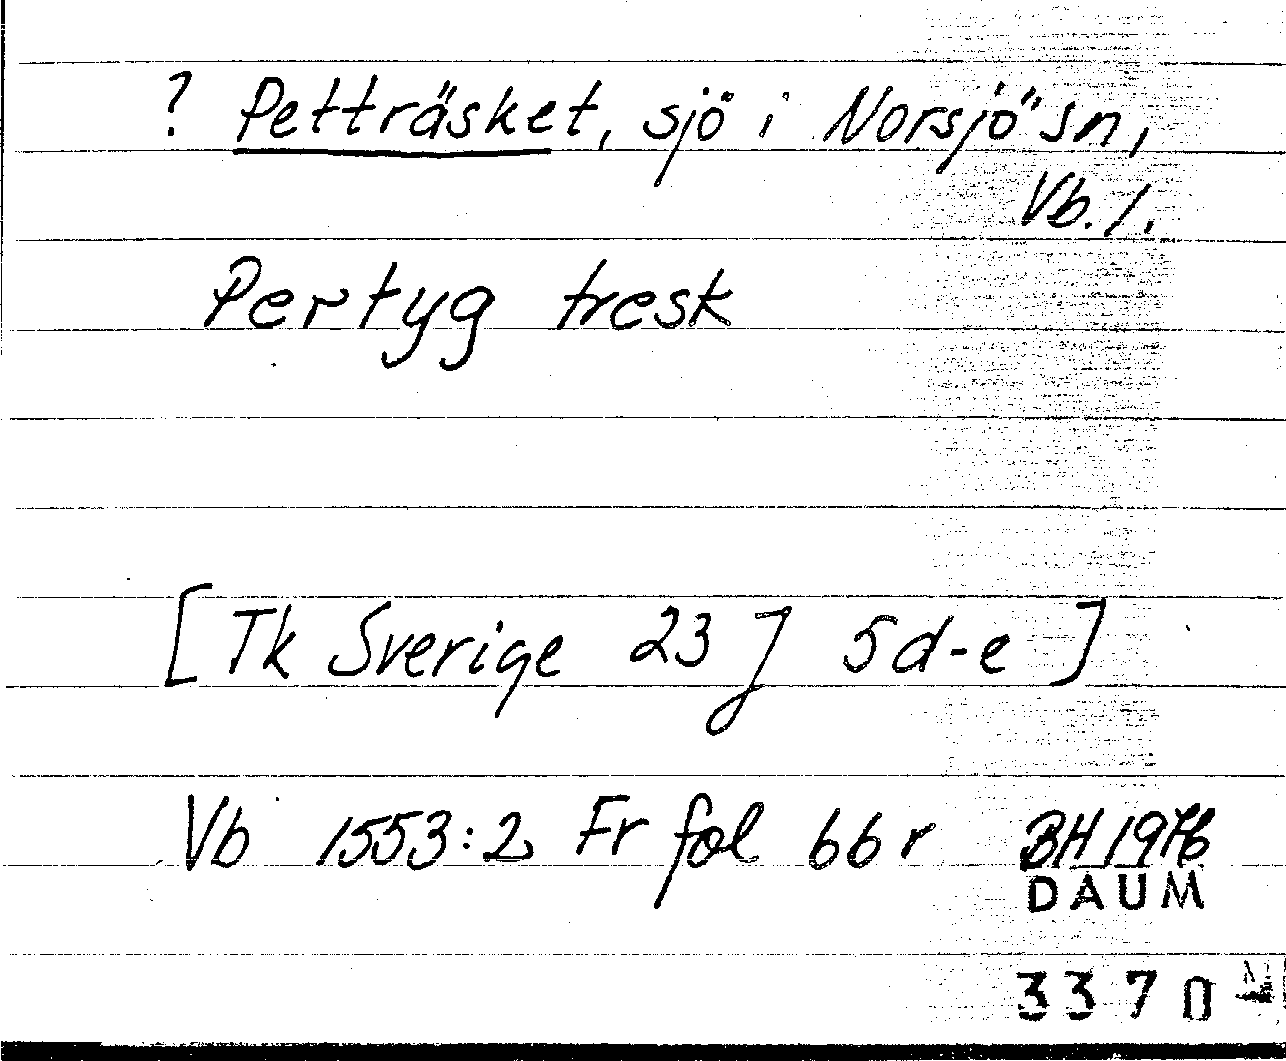 ? Petträsket, sjö i Norsjö sn,
Vb. l.
Pertyg tresk
[Tk Sverige 23 J 5d-e]
Vb 1553:2 Fr fol 66 r BH 1976
DAUM
3370